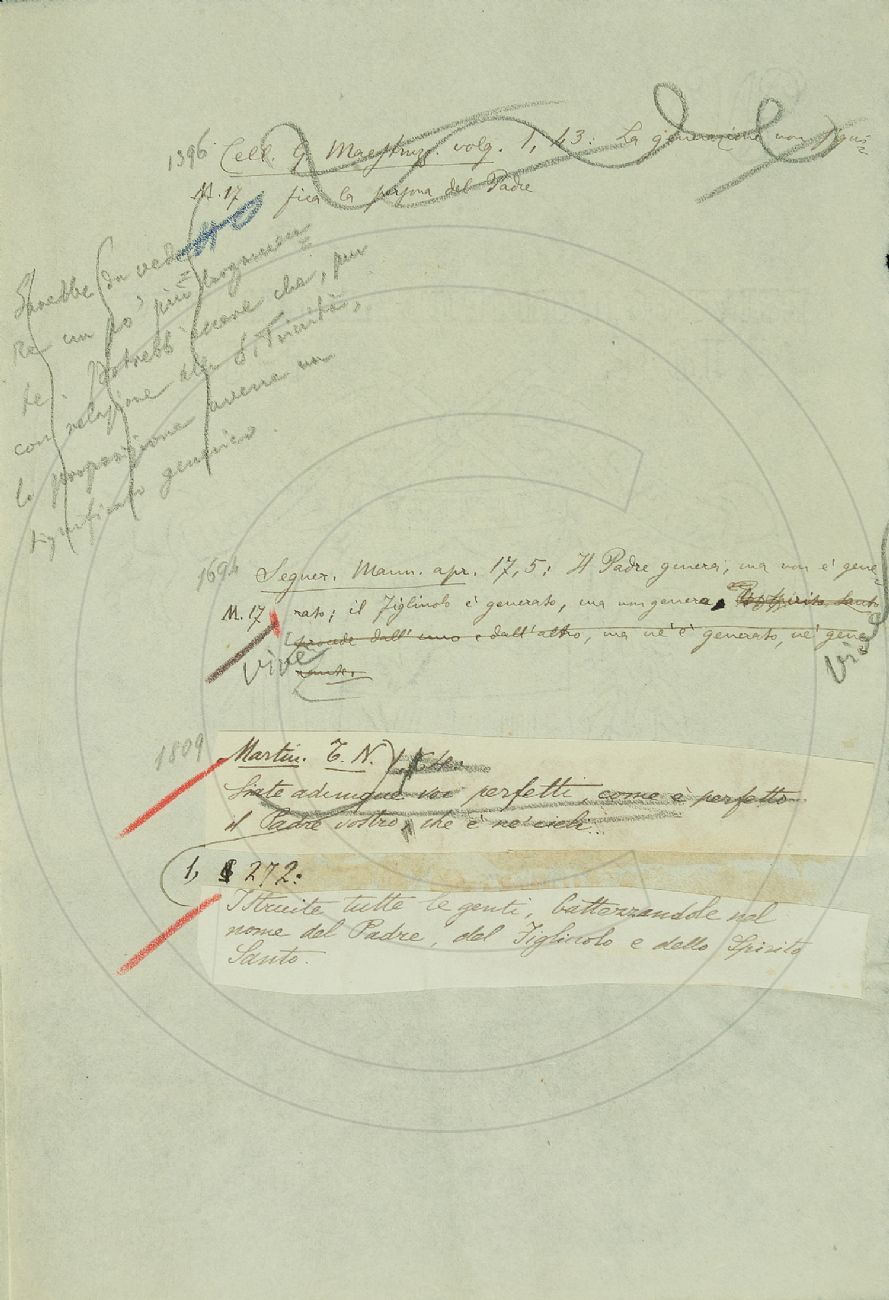 1396 Cell. G. Maestruzz. volg. 1, 43: La generazione non signi=
M. 17 fica la persona del Padre
Sarebbe da vede=
re un po' più largamen=
te. Potrebb'essere che, pur
con relazione alla S. Trinità,
la proposizione avesse un
significato generico.
1694 Segner. Mann. apr. 17, 5: Il Padre genera, ma non è gene=
M. 17 rato; il Figliuolo è generato, ma non genera, lo Spirito Santo
procede dall'uno e dall'altro, ma nè è generato, nè gene=
Vive Vive
1809 Martin. T. N. 1,
Siate adunque voi perfetti, come è perfetto
il Padre vostro, che è ne' cieli.
1, 272:
Istruite tutte le genti, battezzandole nel
nome del Padre, del Figliuolo e dello Spirito
Santo.